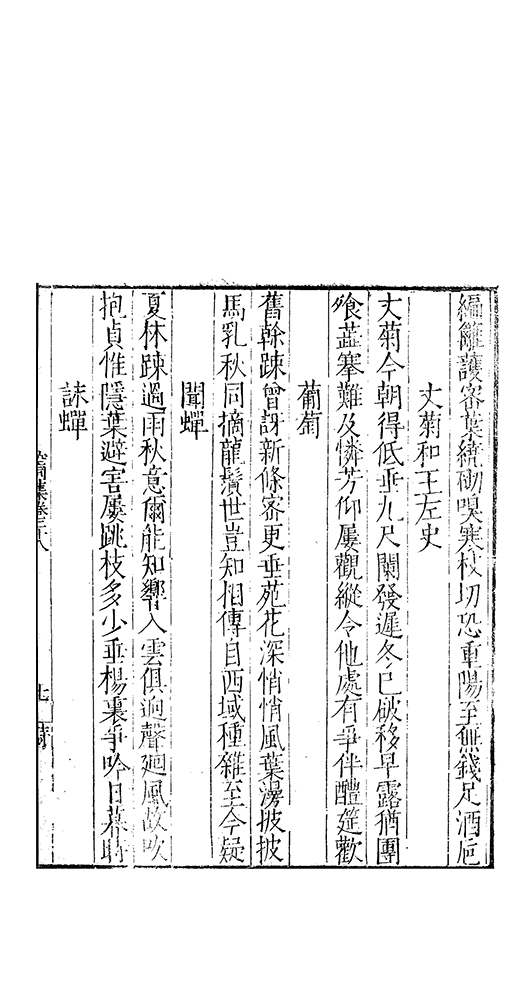 編籬護密葉繞砌嗅寒枝切恐重陽至無錢足酒巵
丈菊和王左史
丈菊今朝得低垂九尺闌發遲冬巳破移早露猶團
飡蘂搴難及憐芳仰屢觀縱令他處有爭伴醴筵歡
葡萄
舊幹踈曾訝新條密更垂苑花深悄悄風葉漫披披
馬乳秋同摘龍鬚世豈知相傳自西域種雜至今疑
聞蟬
夏林踈過雨秋意爾能知響入雲俱逈聲廻風故吹
抱貞惟隱葉避害屢跳枝多少垂楊裏爭吟日暮時
誄蟬
空同集卷二十八
七